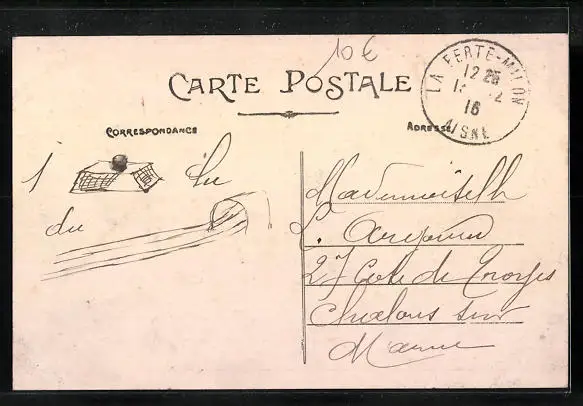 10 €
CARTE POSTALE
LA FERTÉ-MILON
12 25
16
AISNE
CORRESPONDANCE
ADRESSE
1 du
du
Mademoiselle
27 Cote de Troyes
Chalons sur
Marne